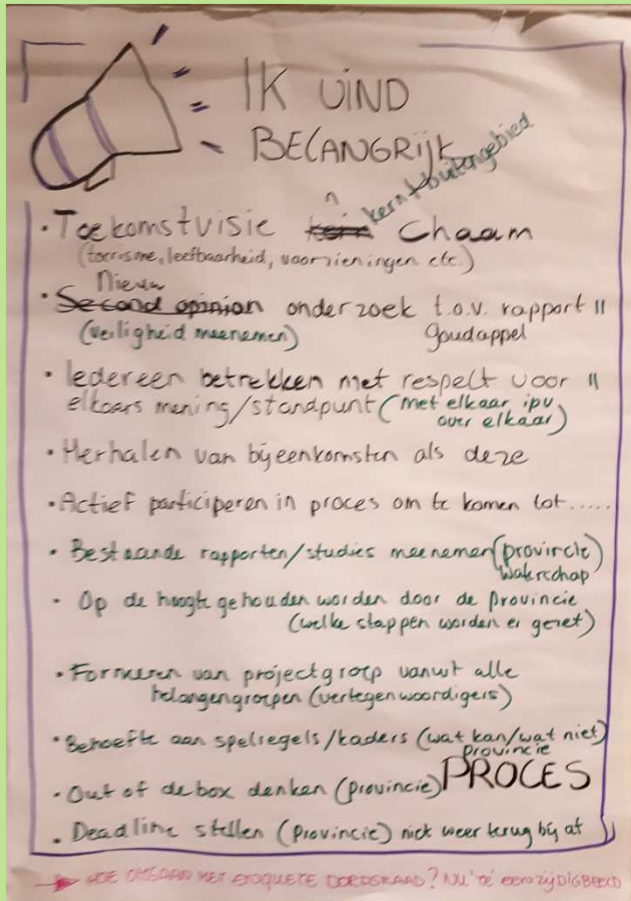 IK VIND
BELANGRIJK
kern + buitengebied
• Toekomstvisie kern Chaam
(toerisme, leefbaarheid, voorzieningen etc.)
Nieuw
• Second opinion onderzoek t.o.v. rapport II
(veiligheid meenemen) Goudappel
• Iedereen betrekken met respekt voor II
elkaars mening/standpunt (met elkaar ipv
over elkaar)
• Herhalen van bijeenkomsten als deze
• Actief participeren in proces om te komen tot.....
• Bestaande rapporten/studies meenemen (provincie)
Waterschap
• Op de hoogte gehouden worden door de provincie
(welke stappen worden er gezet)
• Formeren van projectgroep vanuit alle
belangengroepen (vertegenwoordigers)
• Behoefte aan spelregels/kaders (wat kan/wat niet)
provincie
PROCES
• Out of de box denken (provincie)
• Deadline stellen (provincie) niet weer terug bij af
HOE OMGAAN MET ENQUETE DORPSRAAD? NU 'TE EENZIJDIG BEELD